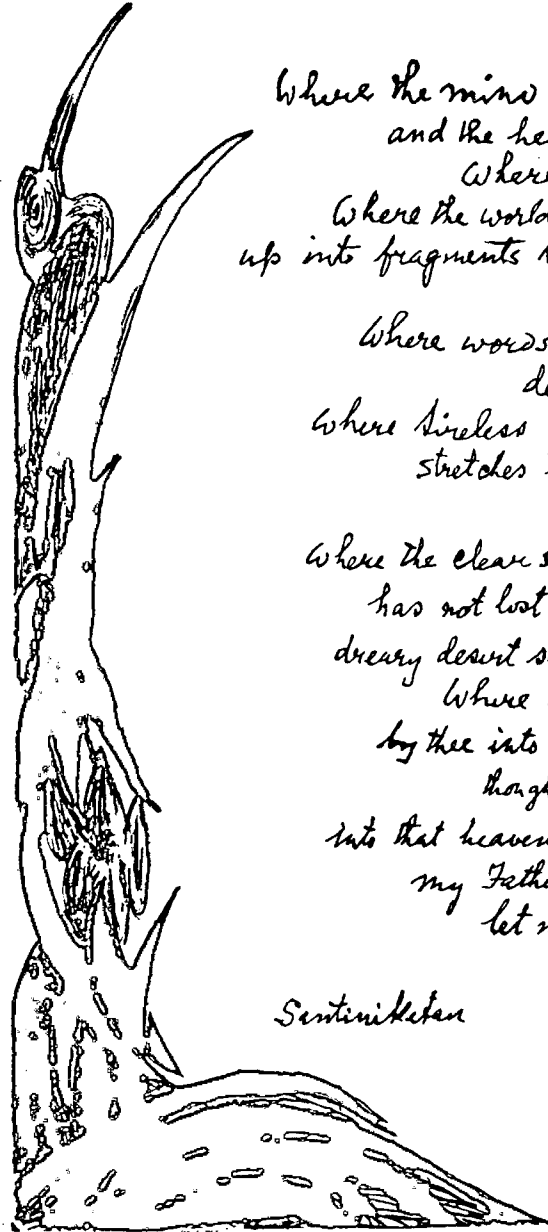 Where the mind
and the he
Where
Where the world
up into fragments
Where words
de
Where tireless
stretches
Where the clear s
has not lost
dreary desert s
Where
by thee into
though
into that heaven
my Fathe
let
Santiniketan